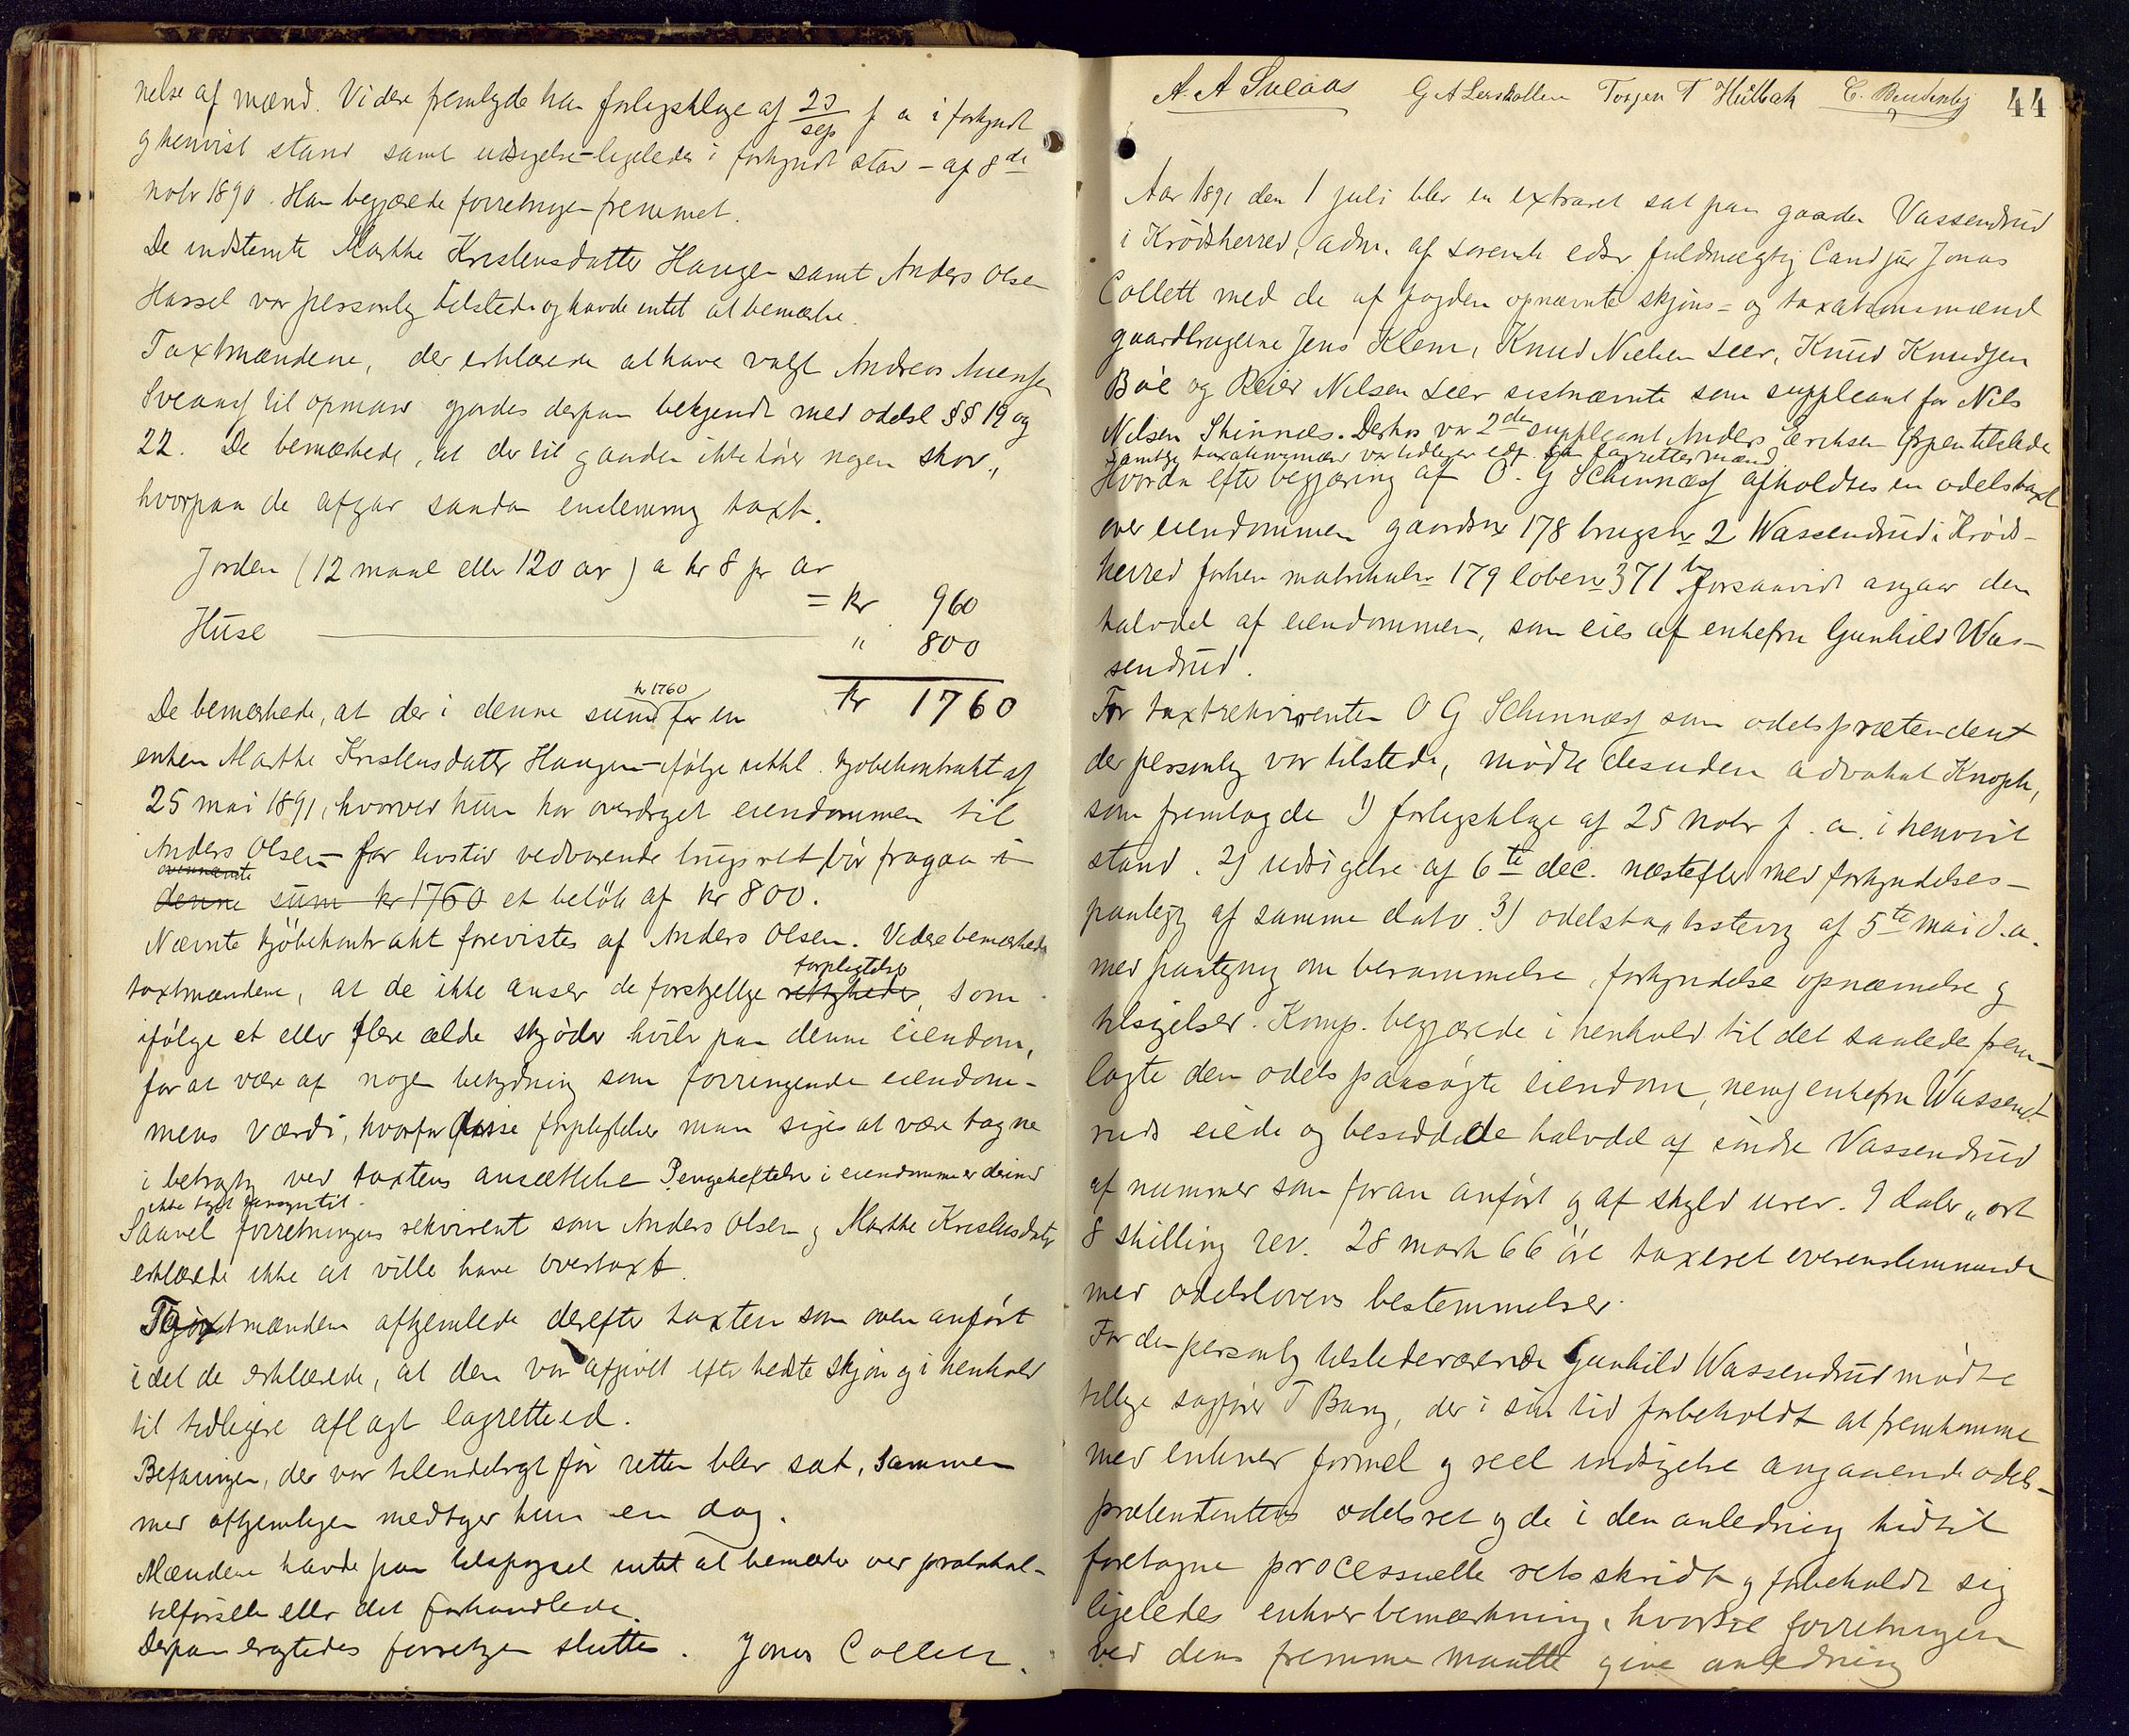 nelse af mænd. Videre fremlagde han forligsklage af 23/sep f a i forkyndt
og henvist stand samt udsigelse – ligeledes i forkyndt stand – af 8de
nobr 1890. Han begjærede forretningen fremmet.
De indstevnte Marthe Kristensdatter Haugen samt Anders Olsen
Hassel var personlig tilstede og havde intet at bemærke.
Taxtmændene, der erklærede at have valgt Andreas Auensen
Sveaas til opmand gjordes derpaa bekjendt med odelsl §§ 19 og
22. De bemærkede, at der til gaarden ikke hører nogen skov,
hvorpaa de afgav saadan enstemmig taxt.
Jorden (12 maal eller 120 ar) a kr 8 pr ar
= kr 960
Huse " 800
kr 1760
De bemærkede, at der i denne sum kr 1760 for en
enken Marthe Kristensdatter Haugen ifølge rekkl. kjøbekontrakt af
25 mai 1891, hvorved hun har overdraget eiendommen til
Anders Olsen – for livstid vedvarende brugsret bør fragaa i
ovennævnte
denne sum kr 1760 et beløb af kr 800.
Nævnte kjøbekontrakt forevistes af Anders Olsen. Videre bemærkede
forpligtelser
taxtmændene, at de ikke anser de forskjellige rettigheder, som
ifølge et eller flere ældre skjøder hviler paa denne eiendom,
for at være af nogen betydning som forringende eiendom-
mens værdi, hvorfor disse forpligtelser maa siges at være tagne
i betragtn ved taxtens ansættelse Pengeheftelser i eiendommen er derimod
ikke taget hensyn til.
Saavel forretningens rekvirent som Anders Olsen og Marthe Kristensdatter
erklærede ikke at ville have overtaxt.
Taxtmændene afhjemlede derefter taxten som oven anført
idet de erklærede, at den var afgivet efter bedste skjøn og i henhold
til tidligere aflagt lagretteed.
Befaringen, der var tilendebragt før retten blev sat, sammen
med afhjemlingen medtager kun en dag.
Mændene havde paa tilspørgsel intet at bemærke ved protokol-
tilførselen eller det forhandlede.
Derpaa eragtedes forretningen sluttet. Jonas Collett.
A. A Sveaas G A Lerskallen Torjen T Hulbak C. Brudenlej
44
Aar 1891 den 1 juli blev en extraret sat paa gaarden Vassendrud
i Krødsherred, adm. af sorensk edsv fuldmægtig Cand jur Jonas
Collett med de af fogden opnævnte skjøns- og taxationsmænd
gaardbrugerne Jens Klem, Knud Nielsen Leer, Knud Knudsen
Bøe og Reier Nilsen Leer sistnævnte som suppleant for Nils
Nilsen Skinnes. Derhos var 2den suppleant Anders Eriksen Gr̶pen tilstede
samtlige taxationsmænd var tidligere edf. som lagrettesmænd
Hvorda efter begjæring af O. G Schinnæss afholdtes en odelstaxt
over eiendommen gaardsnr 178 brugsnr 2 Wassendrud i Krøds-
herred forhen matrikulnr 179 løbenr 371 b forsaavidt angaar den
halvdel af eiendommen, som eies af enkefru Gunhild Was-
sendrud.
For taxtrekvirenten O G Schinnæss som odelsprætendent
der personlig var tilstede, mødte desuden advokat Knoph,
som fremlagde 1) forligsklage af 25 nobr f. a. i henvist
stand. 2) udsigelse af 6te dec. næstefter med forkyndelses-
paategn af samme dato 3) odelstaxtstevn af 5te mai d.a.
med paategning om berammelse, forkyndelse opnævnelse og
tilsigelser. Komp. begjærede i henhold til det saaledes frem-
lagte den odelspaasøgte eiendom, nemlig enkefru Wassend-
ruds eiede og besiddede halvdel af søndre Vassendrud
af nummer som foran anført og af skyld urev. 9 daler " ort
8 skilling rev. 28 mark 66 øre taxeret overensstemmende
med odelslovens bestemmelser.
For den personlig tilstedeværende Gunhild Wassendrud mødte
tillige sagfører T Bang, der i sin tid forbeholdt at fremkomme
med enhver formel og reel indsigelse angaaende odels-
prætendentens odelsret og de i den anledning hidtil
foretagne processuelle retsskridt og forbeholdt sig
ligeledes enhver bemærkning, hvortil forretningen
ved dens fremme maatte give anledning